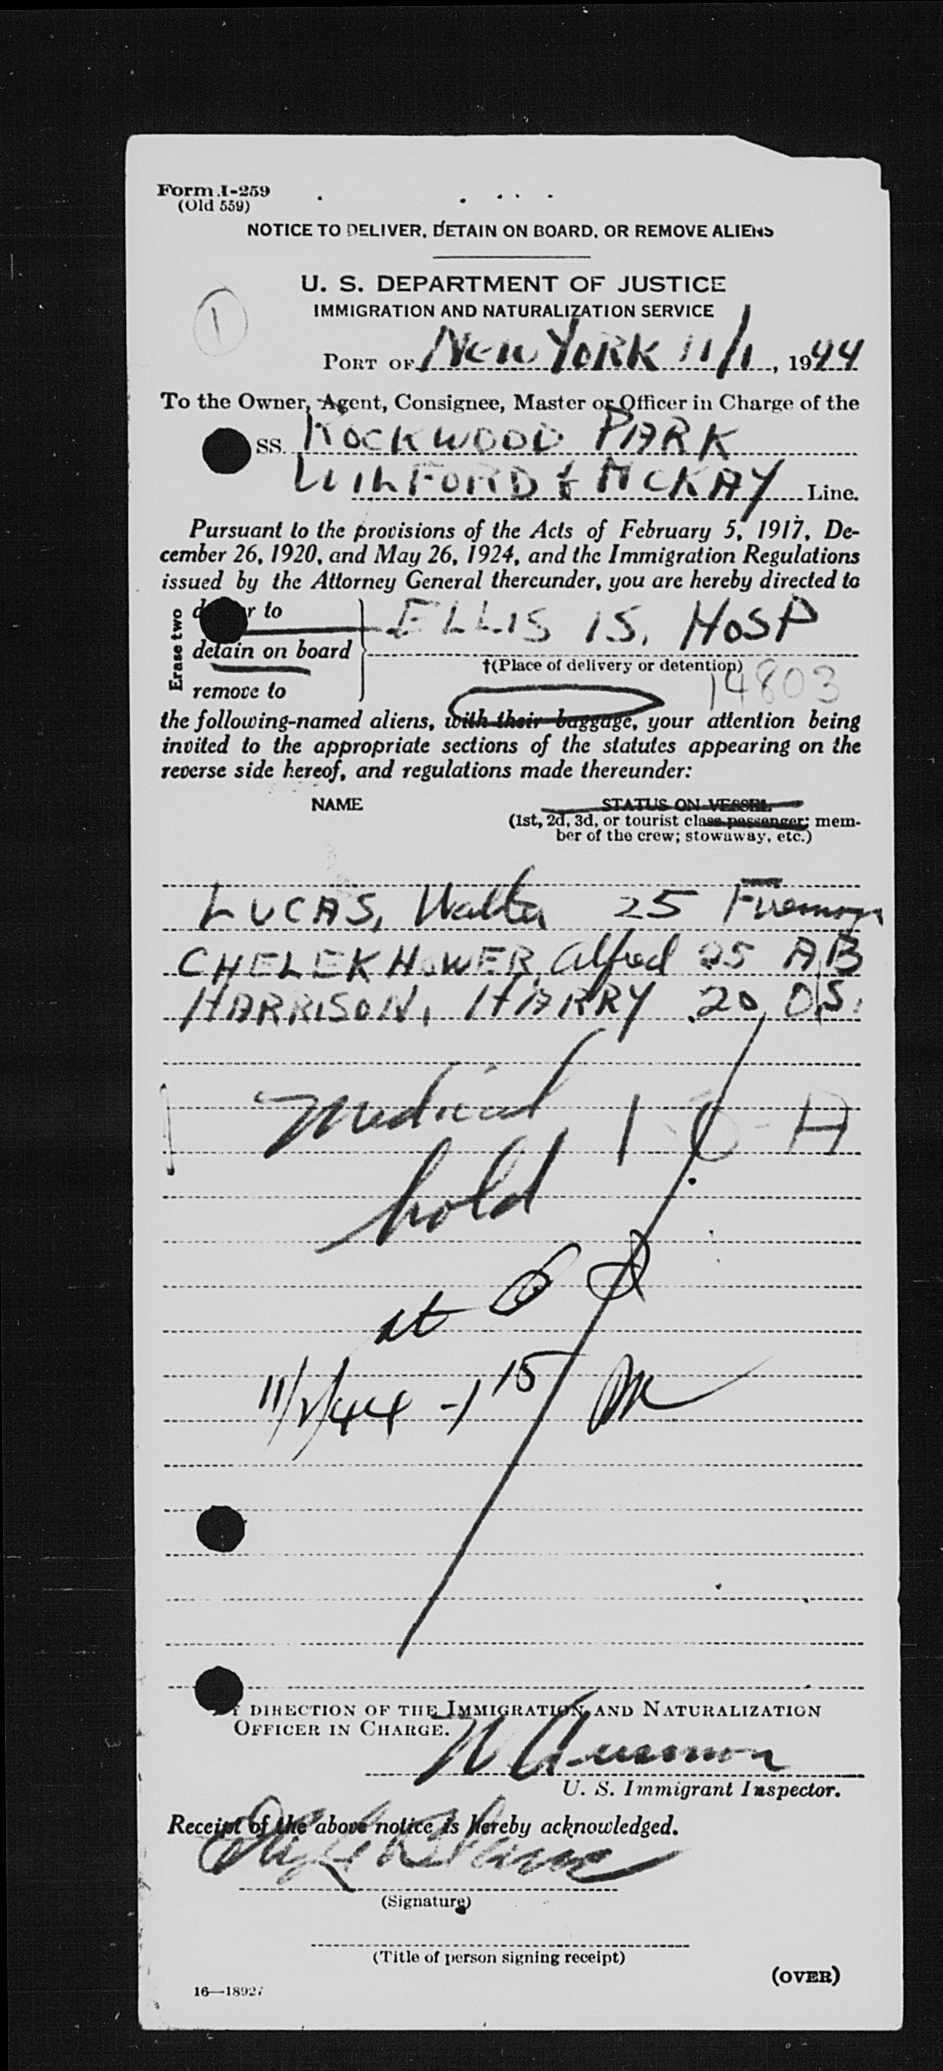 Form I-259
(Old 559)
NOTICE TO DELIVER, DETAIN ON BOARD, OR REMOVE ALIENS
U. S. DEPARTMENT OF JUSTICE
IMMIGRATION AND NATURALIZATION SERVICE
1
PORT OF NEW YORK 11/1, 1944
To the Owner, Agent, Consignee, Master or Officer in Charge of the
SS. ROCKWOOD PARK
WILFORD & MCKAY Line.
Pursuant to the provisions of the Acts of February 5, 1917, De-
cember 26, 1920, and May 26, 1924, and the Immigration Regulations
issued by the Attorney General thereunder, you are hereby directed to
Erase two
deliver to
detain on board
remove to
ELLIS IS. HOSP
†(Place of delivery or detention)
14803
the following-named aliens, with their baggage, your attention being
invited to the appropriate sections of the statutes appearing on the
reverse side hereof, and regulations made thereunder:
NAME STATUS ON VESSEL
(1st, 2d, 3d, or tourist class passenger; mem-
ber of the crew; stowaway, etc.)
LUCAS, Walter 25 Fireman
CHELEKHOWER, Alfred 25 AB
HARRISON, HARRY 20 O.S.
Medical
hold
at
11/1/44 - 1 15
BY DIRECTION OF THE IMMIGRATION AND NATURALIZATION
OFFICER IN CHARGE.
U. S. Immigrant Inspector.
Receipt of the above notice is hereby acknowledged.
(Signature)
(Title of person signing receipt)
(OVER)
16—18927